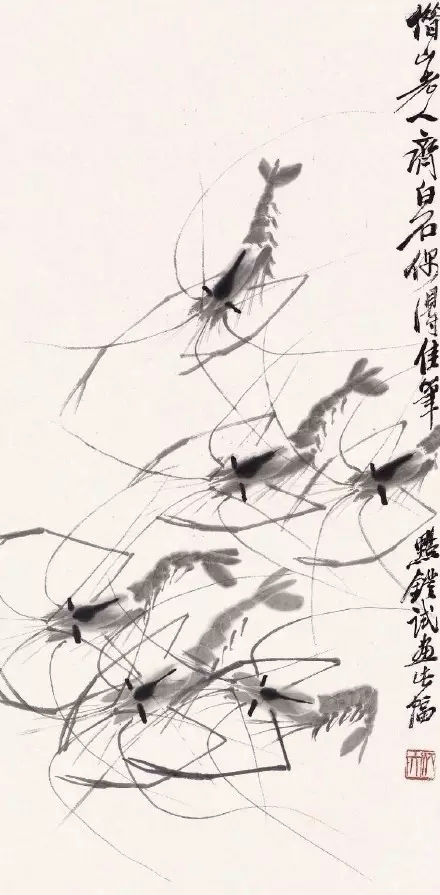 借山老人齊白石偶得佳筆點鐙試畫此幅